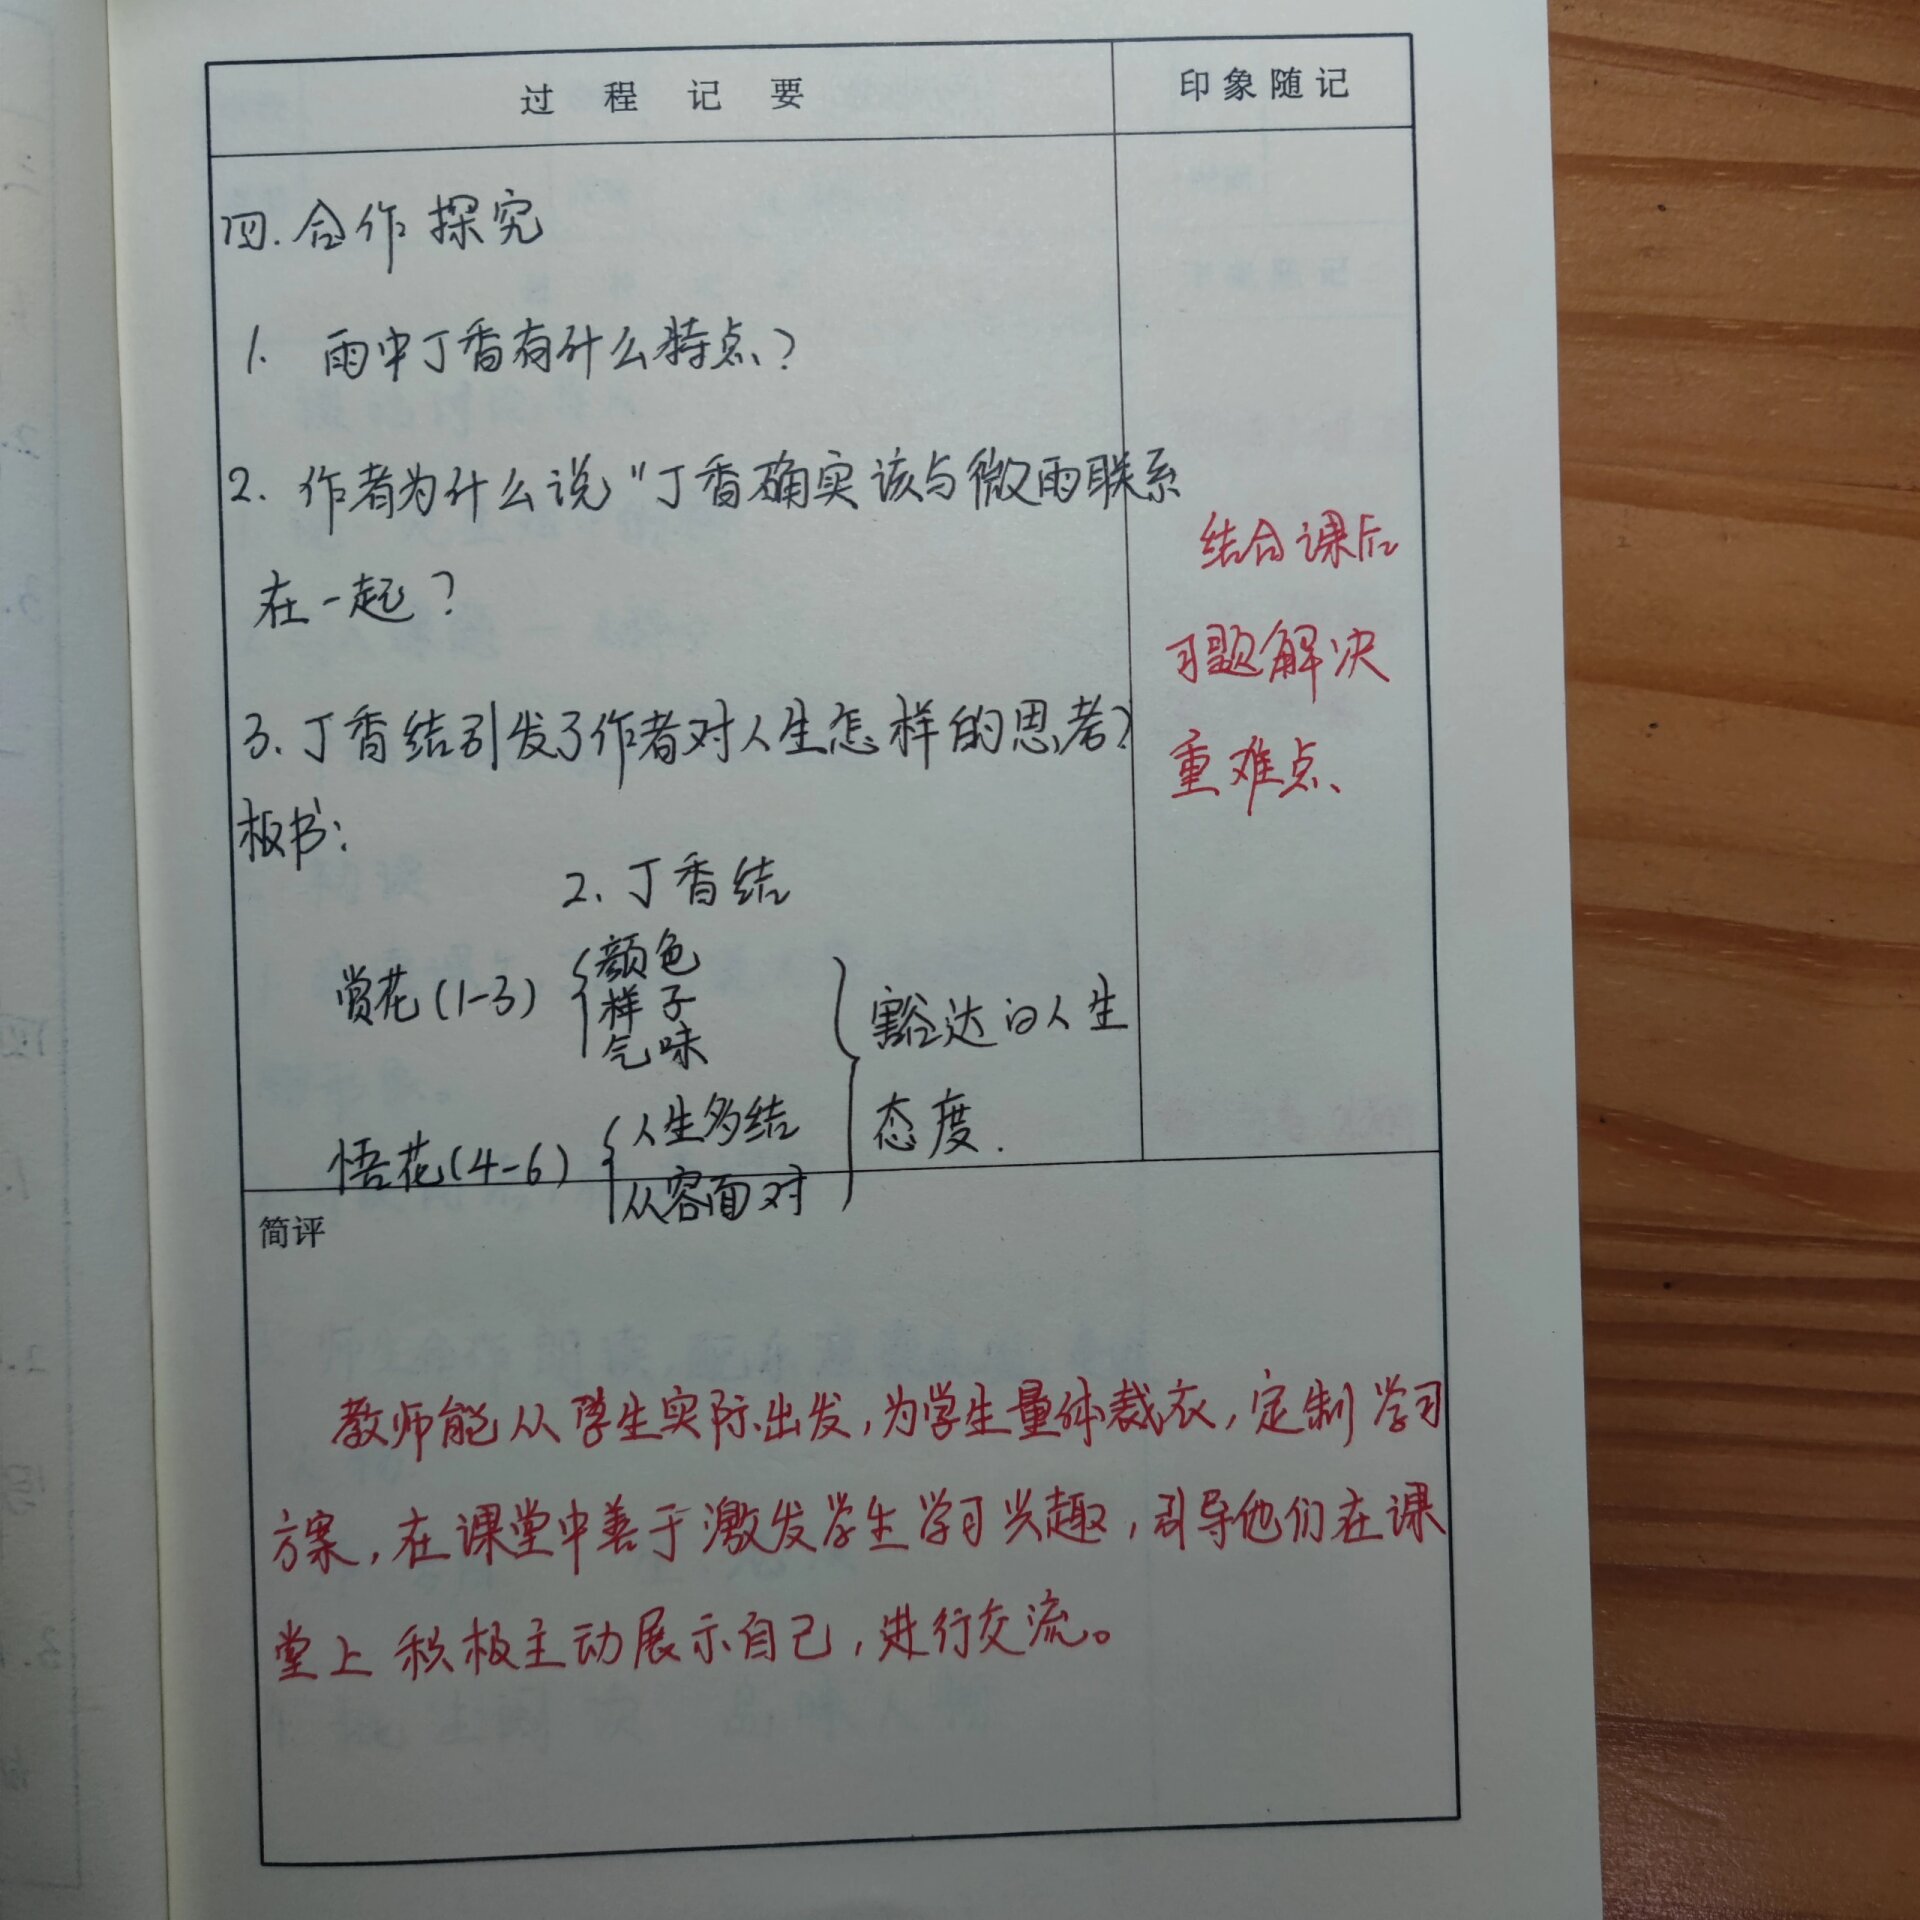 过程记要
印象随记
四.合作探究
1. 雨中丁香有什么特点?
2. 作者为什么说"丁香确实该与微雨联系
在一起?
3. 丁香结引发了作者对人生怎样的思考?
板书:
2. 丁香结
赏花(1-3)
颜色
样子
气味
悟花(4-6)
人生多结
从容面对
豁达的人生
态度.
结合课后
习题解决
重难点、
简评
教师能从学生实际出发,为学生量体裁衣,定制学习
方案,在课堂中善于激发学生学习兴趣,引导他们在课
堂上积极主动展示自己,进行交流。